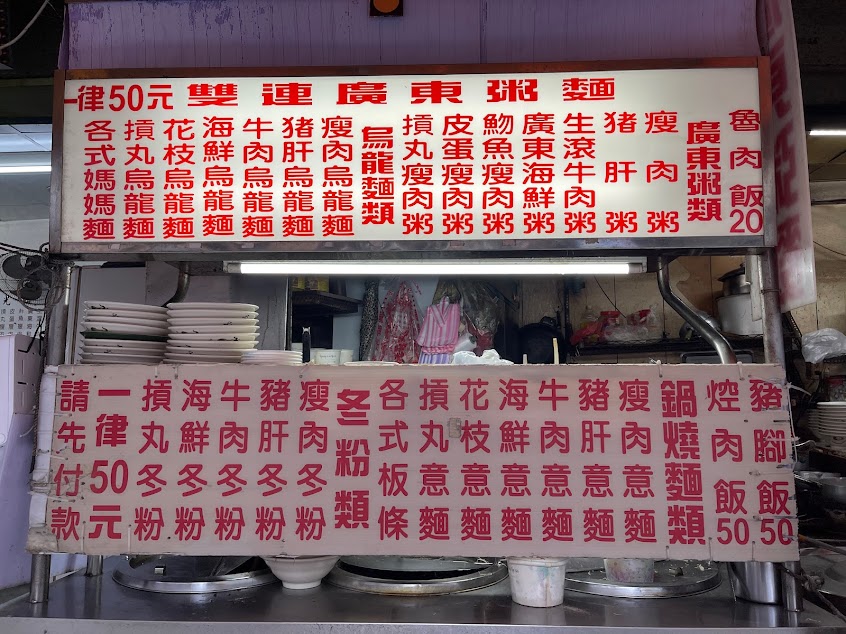 一律50元
雙連廣東粥麵
魯肉飯20
廣東粥類
瘦肉粥
豬肝粥
生滾牛肉粥
廣東海鮮粥
魩魚瘦肉粥
皮蛋瘦肉粥
摃丸瘦肉粥
烏龍麵類
瘦肉烏龍麵
豬肝烏龍麵
牛肉烏龍麵
海鮮烏龍麵
花枝烏龍麵
摃丸烏龍麵
各式媽媽麵
豬腳飯50
焢肉飯50
鍋燒麵類
瘦肉意麵
豬肝意麵
牛肉意麵
海鮮意麵
花枝意麵
摃丸意麵
各式板條
冬粉類
瘦肉冬粉
豬肝冬粉
牛肉冬粉
海鮮冬粉
摃丸冬粉
一律50元
請先付款